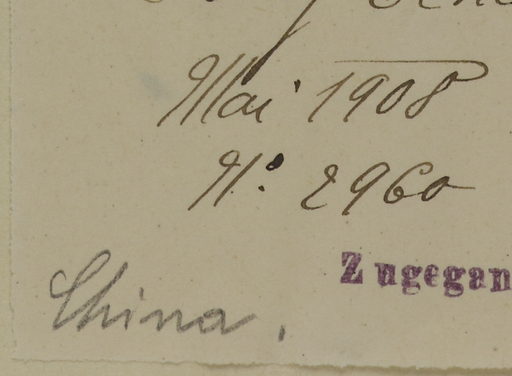 Mai 1908
No. 2960
Zugegan
China.